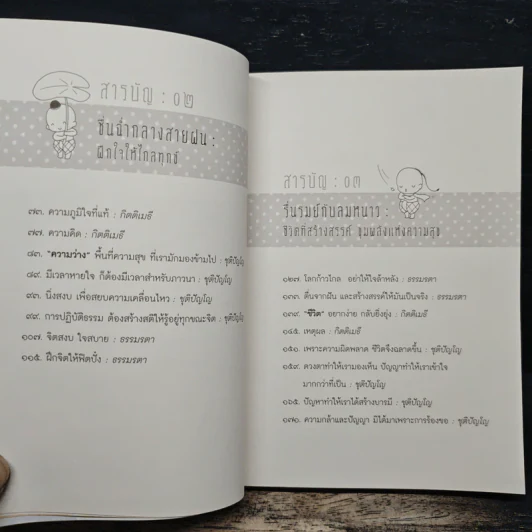 สารบัญ : ๐๒
ชื่นฉ่ำกลางสายฝน :
ฝึกใจให้ไกลทุกข์
๗๓. ความภูมิใจที่แท้ : กิตติเมธี
๗๗. ความคิด : กิตติเมธี
๘๓. "ความว่าง" พื้นที่ความสุข ที่เรามักมองข้ามไป : ชุติปัญโญ
๘๙. มีเวลาหายใจ ก็ต้องมีเวลาสำหรับภาวนา : ชุติปัญโญ
๙๓. นิ่งสงบ เพื่อสยบความเคลื่อนไหว : ชุติปัญโญ
๙๙. การปฏิบัติธรรม ต้องสร้างสติให้รู้อยู่ทุกขณะจิต : ชุติปัญโญ
๑๐๗. จิตสงบ ใจสบาย : ธรรมรตา
๑๑๕. ฝึกจิตให้ฟิตปั๋ง : ธรรมรตา
สารบัญ : ๐๓
รื่นรมย์กับลมหนาว :
ชีวิตที่สร้างสรรค์ ขุมพลังแห่งความสุข
๑๒๗. โลกก้าวไกล อย่าให้ใจล้าหลัง : ธรรมรตา
๑๓๓. ตื่นจากฝัน และสร้างสรรค์ให้มันเป็นจริง : ธรรมรตา
๑๓๙. "ชีวิต" อยากง่าย กลับยิ่งยุ่ง : กิตติเมธี
๑๔๕. เหตุผล : กิตติเมธี
๑๕๑. เพราะความผิดพลาด ชีวิตจึงฉลาดขึ้น : ชุติปัญโญ
๑๕๙. ดวงตาทำให้เรามองเห็น ปัญญาทำให้เราเข้าใจ
มากกว่าที่เป็น : ชุติปัญโญ
๑๖๕. ปัญหาทำให้เราได้สร้างบารมี : ชุติปัญโญ
๑๗๑. ความกล้าและปัญญา มิได้มาเพราะการร้องขอ : ชุติปัญโญ